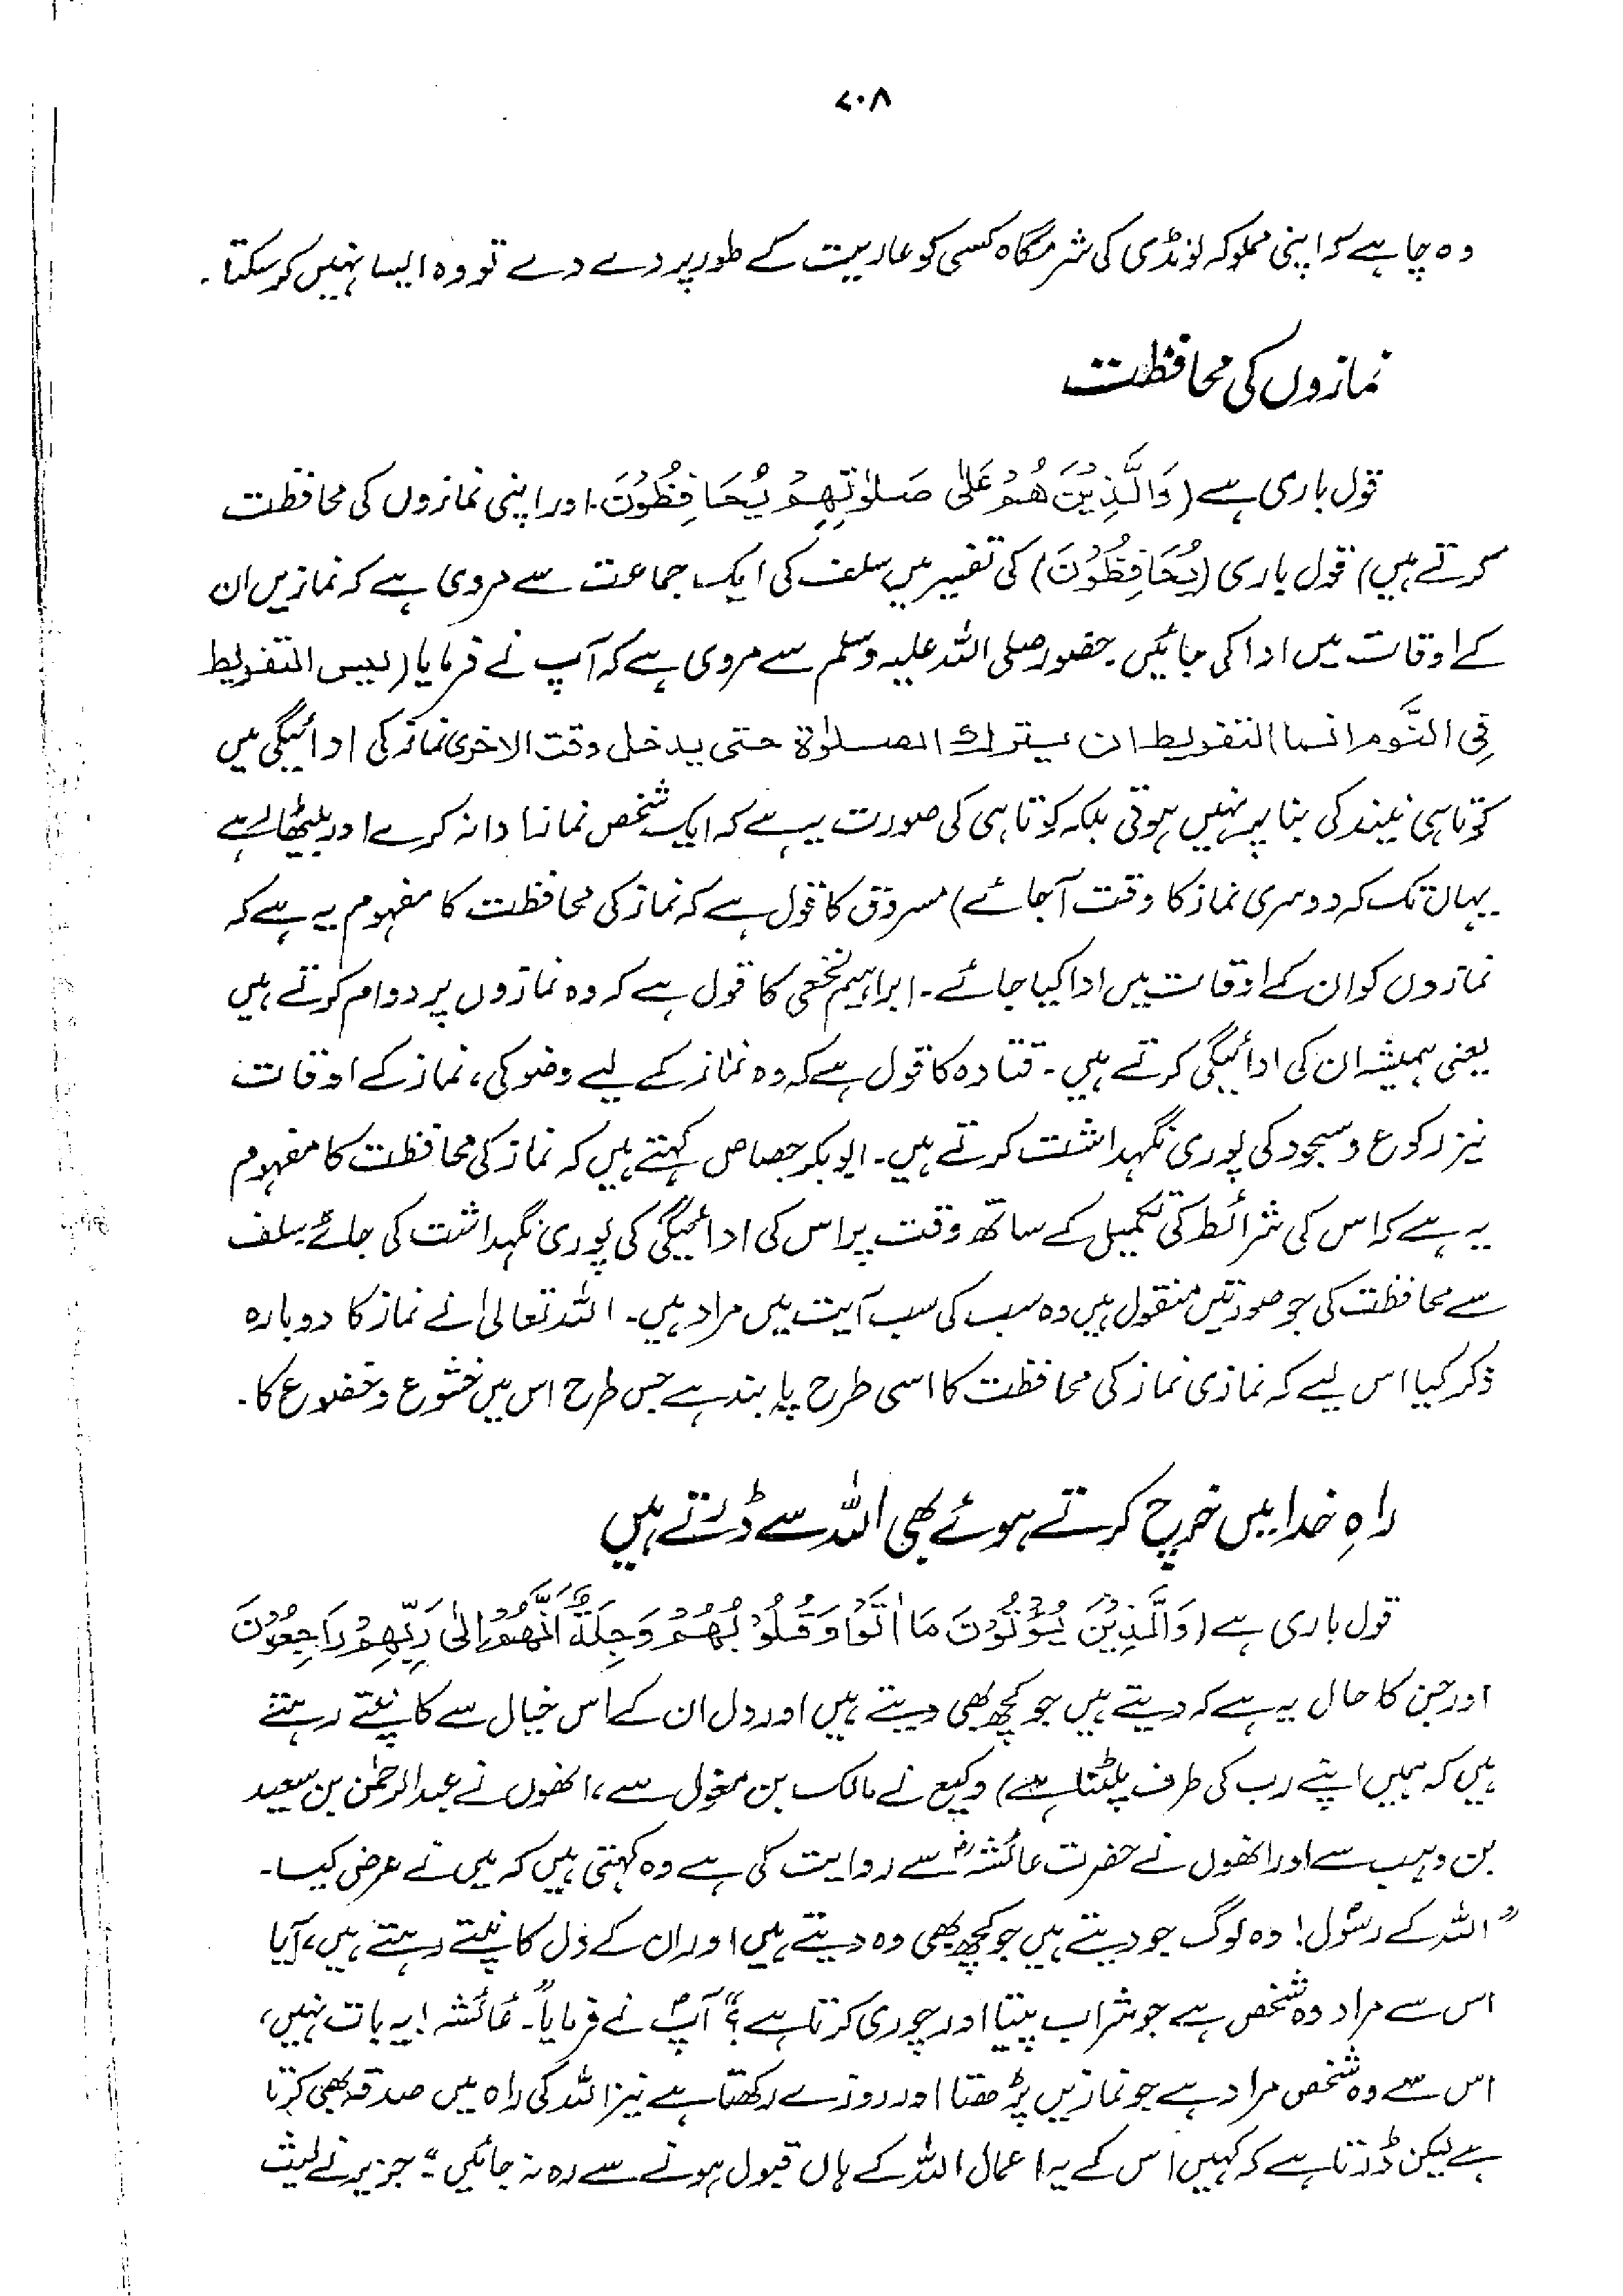 ۷۰۸
وہ چاہے کہ اپنی مملوکہ لونڈی کی شرمگاہ کسی کو عاریت کے طور پر دے دے تو وہ ایسا نہیں کر سکتا۔
نمازوں کی محافظت
قول باری ہے (وَالَّذِیْنَ ھُمْ عَلٰی صَلَوٰتِھِمْ یُحَافِظُوْنَ۔ اور اپنی نمازوں کی محافظت
کرتے ہیں) قول باری (یُحَافِظُوْنَ) کی تفسیر میں سلف کی ایک جماعت سے مروی ہے کہ نمازیں ان
کے اوقات میں ادا کی جائیں۔ حضور صلی اللہ علیہ وسلم سے مروی ہے کہ آپ نے فرمایا (لیس التفریط
فِی النَّوم انما التفریط ان یترک الصلوٰۃ حتی یدخل وقت الاخری نماز کی ادائیگی میں
کوتاہی نیند کی بنا پر نہیں ہوتی بلکہ کوتاہی کی صورت یہ ہے کہ ایک شخص نماز ادا نہ کرے اور بیٹھا رہے
یہاں تک کہ دوسری نماز کا وقت آ جائے) مسروق کا قول ہے کہ نماز کی محافظت کا مفہوم یہ ہے کہ
نمازوں کو ان کے اوقات میں ادا کیا جائے۔ ابراہیم نخعی کا قول ہے کہ وہ نمازوں پر دوام کرتے ہیں
یعنی ہمیشہ ان کی ادائیگی کرتے ہیں۔ قتادہ کا قول ہے کہ وہ نماز کے لیے وضو کی، نماز کے اوقات
نیز رکوع و سجود کی پوری نگہداشت کرتے ہیں۔ ابوبکر جصاص کہتے ہیں کہ نماز کی محافظت کا مفہوم
یہ ہے کہ اس کی شرائط کی تکمیل کے ساتھ وقت پر اس کی ادائیگی کی پوری نگہداشت کی جائے۔ سلف
سے محافظت کی جو صورتیں منقول ہیں وہ سب کی سب آیت میں مراد ہیں۔ اللہ تعالیٰ نے نماز کا دوبارہ
ذکر کیا اس لیے کہ نمازی نماز کی محافظت کا اسی طرح پابند ہے جس طرح اس میں خشوع و خضوع کا۔
راہِ خدا میں خرچ کرتے ہوئے بھی اللہ سے ڈرتے ہیں
قول باری ہے (وَالَّذِیْنَ یُؤْتُوْنَ مَا اٰتَوْا وَقُلُوْبُھُمْ وَجِلَۃٌ اَنَّھُمْ اِلٰی رَبِّھِمْ رَاجِعُوْنَ
اور جن کا حال یہ ہے کہ دیتے ہیں جو کچھ بھی دیتے ہیں اور دل ان کے اس خیال سے کانپتے رہتے
ہیں کہ ہمیں اپنے رب کی طرف پلٹنا ہے) وکیع نے مالک بن مغول سے، انھوں نے عبدالرحمٰن بن سعید
بن وہب سے اور انھوں نے حضرت عائشہؓ سے روایت کی ہے وہ کہتی ہیں کہ میں نے عرض کیا۔
"اللہ کے رسولؐ! وہ لوگ جو دیتے ہیں جو کچھ بھی وہ دیتے ہیں اور ان کے دل کانپتے رہتے ہیں، آیا
اس سے مراد وہ شخص ہے جو شراب پیتا اور چوری کرتا ہے؟" آپؐ نے فرمایا۔ "عائشہ! یہ بات نہیں،
اس سے وہ شخص مراد ہے جو نمازیں پڑھتا اور روزے رکھتا ہے نیز اللہ کی راہ میں صدقہ بھی کرتا
ہے لیکن ڈرتا ہے کہ کہیں اس کے یہ اعمال اللہ کے ہاں قبول ہونے سے رہ نہ جائیں"۔ جریر نے لیث